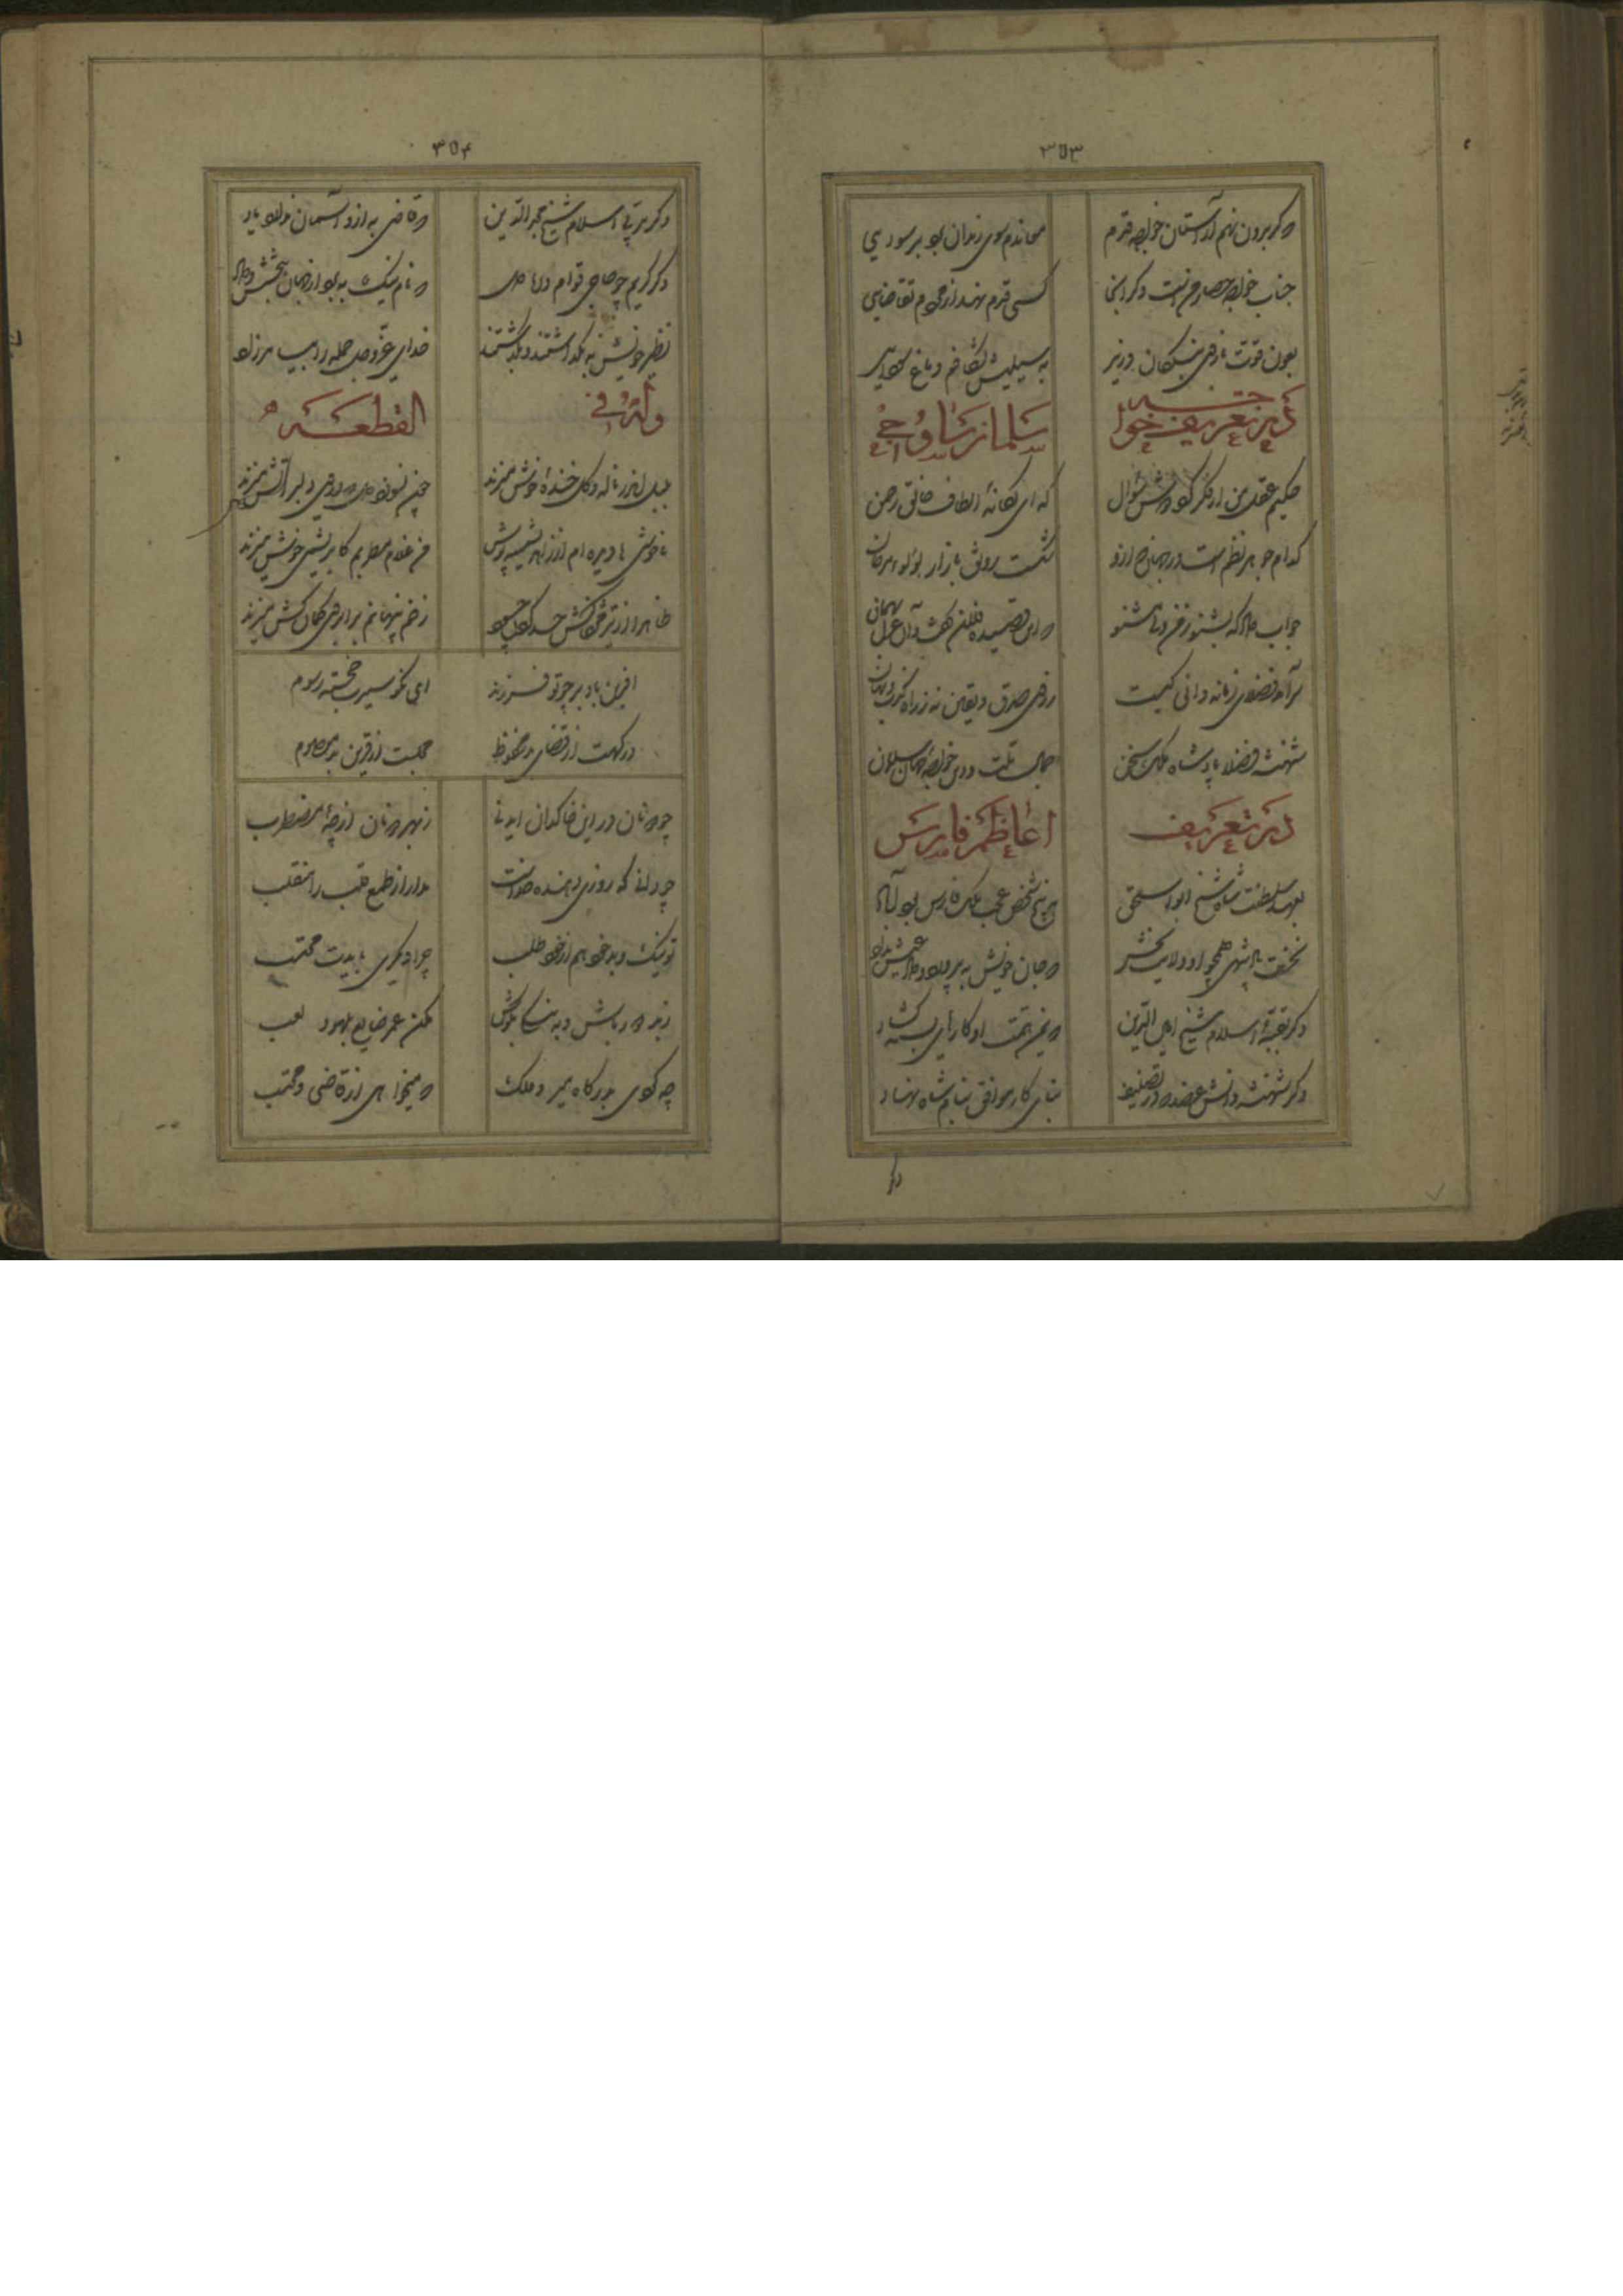 ۳۵۳
وگر برون نهم از آستان خواجه قدم
مانندم سوی زندان بود بر سودایی
جناب خواجه حصار من است وگر اینجا
کسی قدم نهد از مردم تقاضایی
بعون قوت بازوی بندگان وزیر
به سیلیش بشکافم دماغ سودایی
در تعریف خواجه
سلمان ساوجی
حکیم عقل من از فکر کرد دوش سوال
که ای یگانه الطاف خالق رحمن
کدام جوهر نظم است در جهان که ازو
شکست رونق بازار لولو و مرجان
جواب داد که بشنو ز من ولی مشنو
که این قصیده فلان گفت و آن غزل بهمان
سرآمد فضلای زمانه دانی کیست
ز روی صدق و یقین نه ز راه کذب و گمان
شهنشه فضلا پادشاه ملک سخن
جمال ملت و دین خواجه جهان سلمان
در تعریف
اعاظم فارس
بعهد سلطنت شاه شیخ ابو اسحق
به پنج شخص عجب ملک فارس بود آباد
نخست پادشهی همچو او ولایت بخش
که جان خویش بپرورد و داد عیش بداد
دگر بقیه اسلام شیخ امین الدین
که یمن همت او کارهای بسته گشاد
دگر شهنشه دانش عضد که در تصنیف
بنای کار مواقف بنام شاه نهاد
دگر
۳۵۴
دگر مربی اسلام شیخ مجد الدین
که قاضی به ازو آسمان ندارد یاد
دگر کریم چو حاجی قوام دریا دل
که نام نیک به برد از جهان ببخشش و داد
نظیر خویش به نگذاشتند و بگذشتند
خدای عز و جل جمله را بیامرزاد
وله فی
القطعه
بلبل اندر ناله و گل خنده خوش میزند
چون نسوزد دل که در وی دلبر آتش میزند
ناخوشی ها دیده ام از زاهد پشمینه پوش
من غلام مطربم کابریشمی خوش میزند
ظاهرا از تیر مژگانش حذر کردم چه سود
زخم پنهانم به ابروی کمان کش میزند
آفرین باد بر چو تو فرزند
ای نکو سیرت خجسته رسوم
درگهت از قضای بد محفوظ
مجلست از قرین بد معصوم
چو دو نان در این خاکدان دنی
ز بهر دو نان از چه مضطرب
چو دانی که روزی دهنده خداست
مدار از طمع قلب را منقلب
تو نیک و بد خود هم از خود طلب
چرا دیگری بایدت محتسب
مکن عمر ضایع بلهو و لعب
چه گوئی بدرگاه میر و ملک
چه میخواهی از قاضی و محتسب